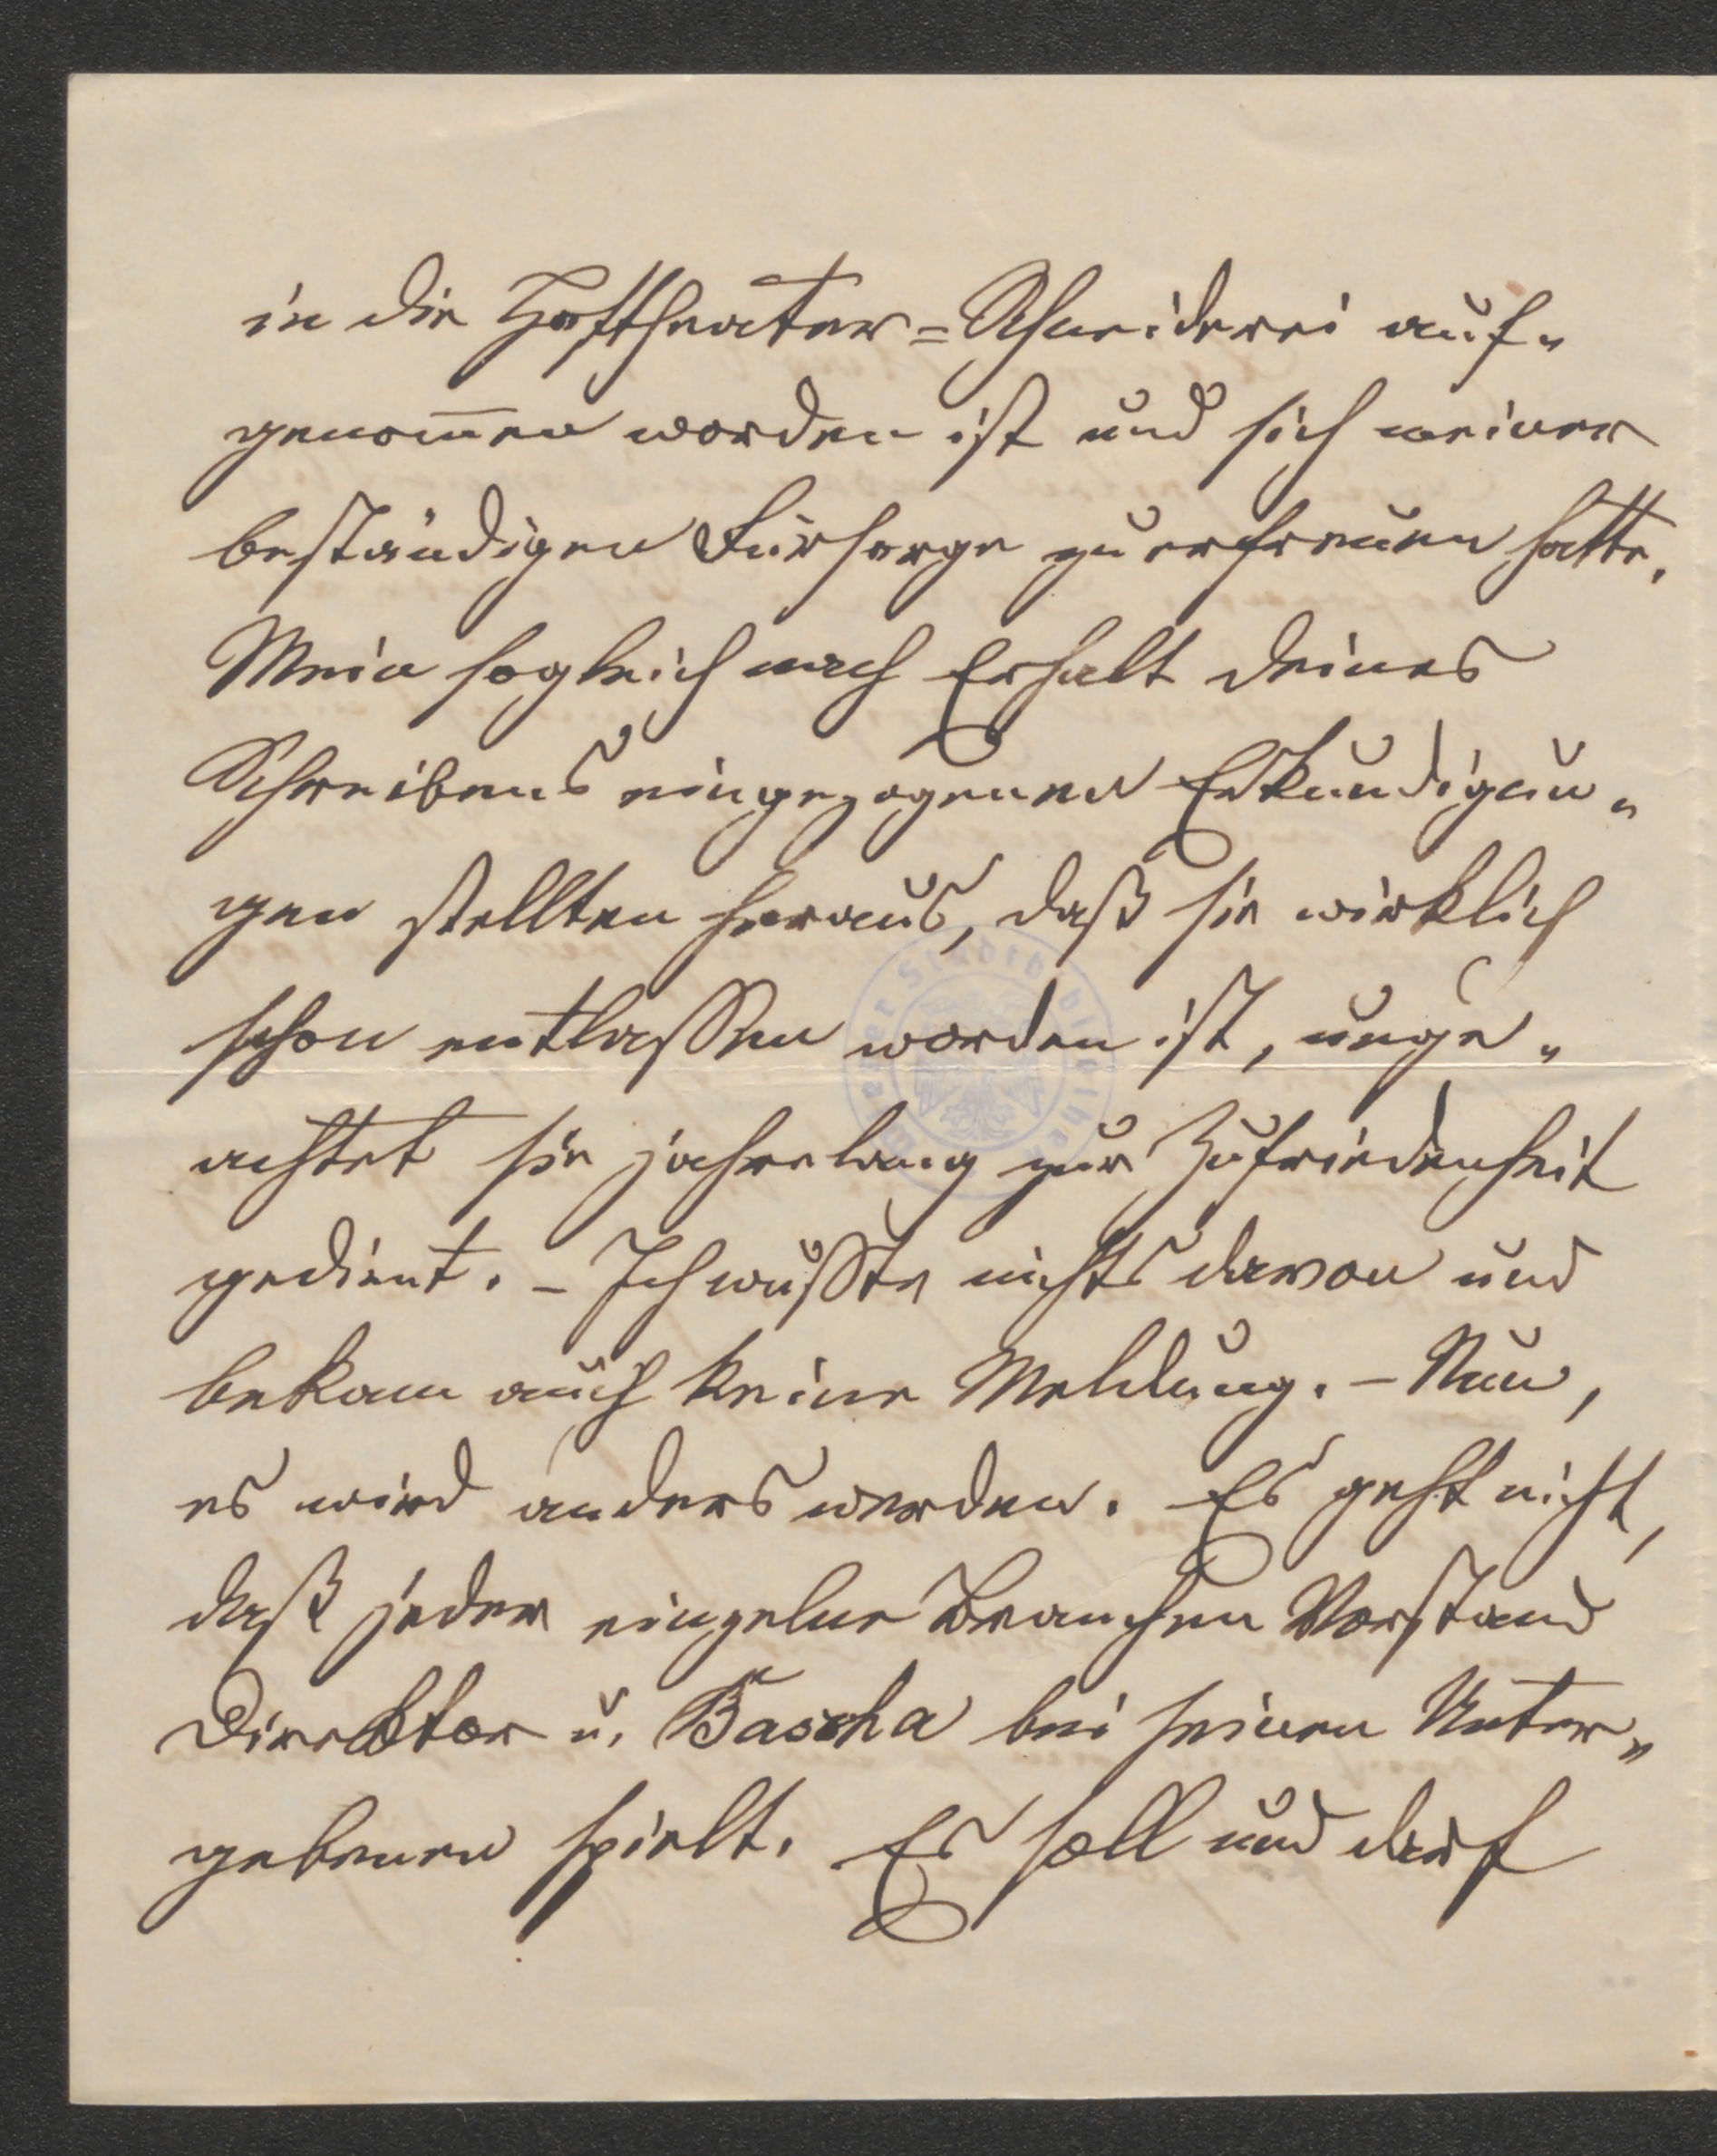 in die Hoftheater=Schneiderei auf„
genom̅en worden ist und sich meiner
beständigen Fürsorge zu erfreuen hatte.
Mein sogleich nach Erhalt deines
Schreibens eingezogenen Erkundigun„
gen stellten heraus, daß sie wirklich
schon entlassen worden ist, unge„
achtet sie jahrelang zur Zufriedenheit
gedient. – Ich wußte nichts davon und
bekam auch keine Meldung. – Nun,
es wird anders werden. Es geht nicht,
daß jeder einzelne Branchen Vorstand
Direktor u. Bascha bei seinen Unter„
gebenen spielt. Es soll und darf
Wiener Stadtbibliothek